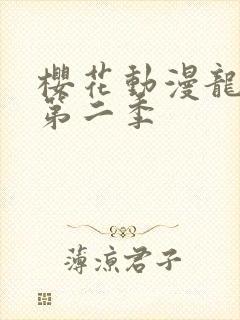 櫻花動漫龍
第二季
薄涼君子